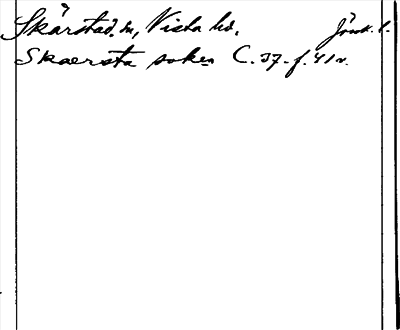 Skärstad sn, Vista hd. Jönk. l.
Skaersta soken C. 37. f. 41 v.